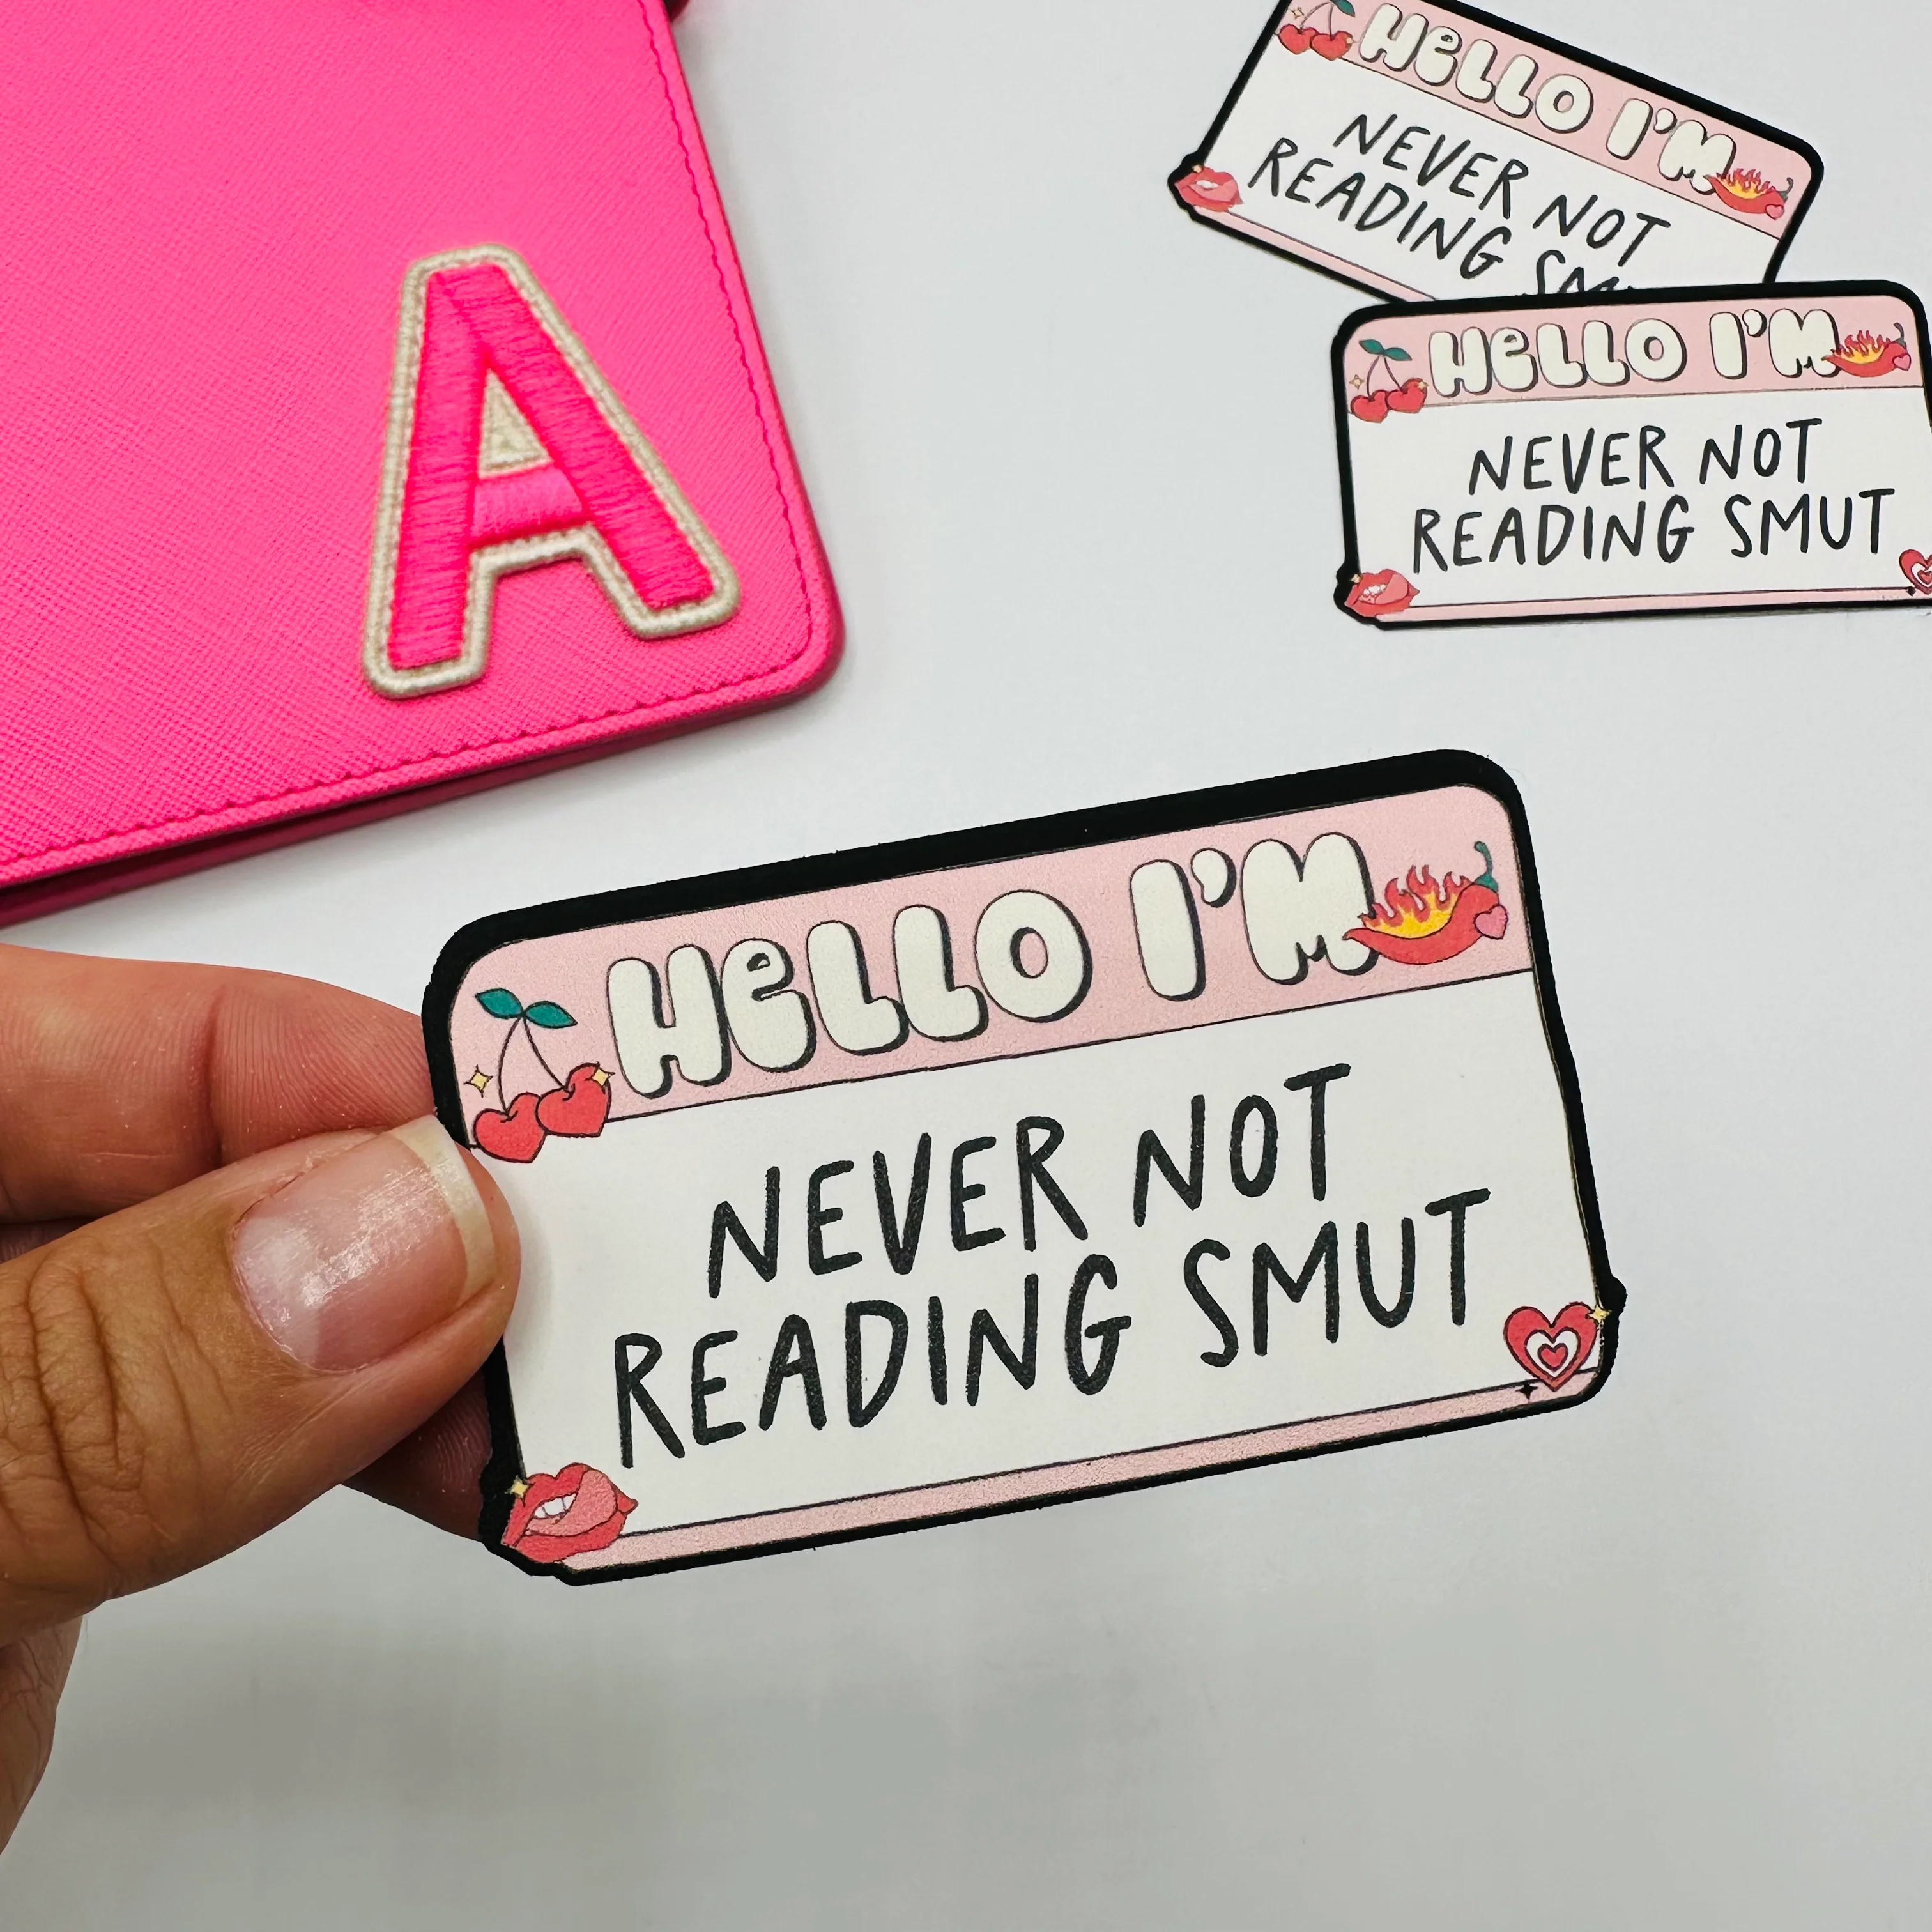 A
HELLO I'M
NEVER NOT
READING SM
HELLO I'M
NEVER NOT
READING SMUT
HELLO I'M
NEVER NOT
READING SMUT